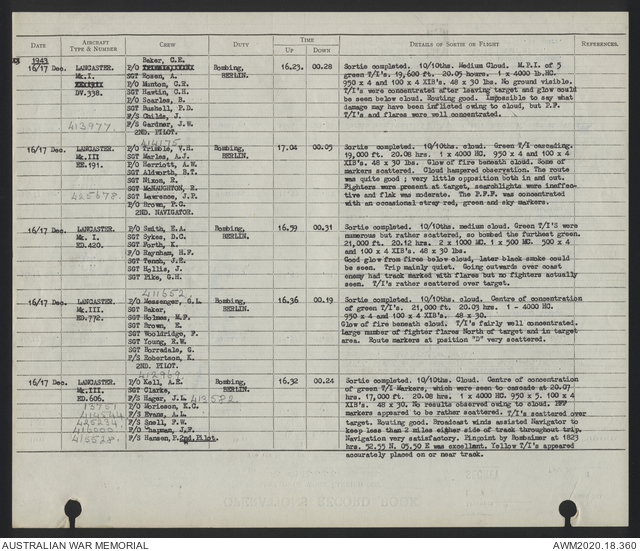 DATE AIRCRAFT TYPE & NUMBER CREW DUTY TIME UP DOWN DETAILS OF SORTIE OR FLIGHT REFERENCES.
1943
16/17 Dec. LANCASTER. Mk.I. DV.338. Bombing, BERLIN. 16.23. 00.28
Baker, C.E.
P/O
SGT Rozen, A.
P/O Munton, C.R.
SGT Hawtin, C.H.
P/O Scarles, B.
SGT Bushell, P.D.
F/S Childs, J.
F/S Gardner, J.W.
2ND. PILOT.
413977
Sortie completed. 10/10ths. Medium Cloud. M.P.I. of 5
green T/I's. 19,600 ft. 20.05 hours. 1 x 4000 lb.HC.
950 x 4 and 100 x 4 XIB's. 48 x 30 lbs. No ground visible.
T/I's were concentrated after leaving target and glow could
be seen below cloud. Routing good. Impossible to say what
damage may have been inflicted owing to cloud, but P.F.
T/I's and flares were well concentrated.
414175
16/17 Dec. LANCASTER. Mk.III EE.191. Bombing, BERLIN. 17.04 00.05
P/O Trimble, V.H.
SGT Marles, A.J.
P/O Herriott, A.W.
SGT Aldworth, B.T.
SGT Nixon, R.
SGT McNAUGHTON, R.
SGT Lawrence, J.P.
F/O Brown, P.G.
2ND. NAVIGATOR.
425678
Sortie completed. 10/10ths. cloud. Green T/I cascading.
19,000 ft. 20.08 hrs. 1 x 4000 HC. 950 x 4 and 100 x 4
XIB's. 48 x 30 lbs. Glow of fire beneath cloud. Some of
markers scattered. Cloud hampered observation. The route
was quite good; very little opposition both in and out.
Fighters were present at target, searchlights were ineffec-
tive and flak was moderate. The P.F.F. was concentrated
with an occasional stray red, green and sky markers.
16/17 Dec. LANCASTER. Mk. I. ED.420. Bombing, BERLIN. 16.59 00.31
F/O Smith, E.A.
SGT Sykes, D.C.
SGT Forth, K.
F/O Haynham, H.F.
SGT Tench, J.E.
SGT Hollis, J.
SGT Pike, G.H.
Sortie completed. 10/10ths. medium cloud. Green T/I'S were
numerous but rather scattered, so bombed the furthest green.
21,000 ft. 20.12 hrs. 2 x 1000 MC. 1 x 500 MC. 500 x 4
and 100 x 4 XIB's. 48 x 30 lbs.
Good glow from fires below cloud, later black smoke could
be seen. Trip mainly quiet. Going outwards over coast
enemy had track marked with flares but no fighters actually
seen. T/I's rather scattered over target.
411652
16/17 Dec. LANCASTER. Mk.III. ED.772. Bombing, BERLIN. 16.36 00.19
F/O Messenger, G.L.
SGT Baker,
SGT Holmes, M.F.
SGT Brown, E.
SGT Wooldridge, F.
SGT Young, R.W.
SGT Borradale, G.
F/S Robertson, K.
2ND. PILOT.
Sortie completed. 10/10ths. cloud. Centre of concentration
of green T/I's. 21,000 ft. 20.03 hrs. 1 - 4000 HC.
950 x 4 and 100 x 4 XIB's. 48 x 30.
Glow of fire beneath cloud. T/I's fairly well concentrated.
Large number of fighter flares North of target and in target
area. Route markers at position "D" very scattered.
412969
16/17 Dec. LANCASTER. Mk.III. ED.606. Bombing, BERLIN. 16.32 00.24
F/O Kell, A.E.
SGT Clarke,
F/S Hager, J.L. 413582
F/O Morieson, K.C.
F/S Evans, A.L.
F/S Snell, F.W.
F/O Chapman, J.F.
F/S Hansen, P. 2nd.Pilot.
414544
425234
410000
415528
Sortie completed. 10/10ths. Cloud. Centre of concentration
of green T/I Markers, which were seen to cascade at 20.07
hrs. 17,000 ft. 20.08 hrs. 1 x 4000 HC. 950 x 5. 100 x 4
XIB's. 48 x 30. No results observed owing to cloud. PFF
markers appeared to be rather scattered. T/I's scattered over
target. Routing good. Broadcast winds assisted Navigator to
keep less than 2 miles either side of track throughout trip.
Navigation very satisfactory. Pinpoint by Bombaimer at 1823
hrs. 52.55 N, 05.50 E was excellent. Yellow T/I's appeared
accurately placed on or near track.
AUSTRALIAN WAR MEMORIAL AWM2020.18.360